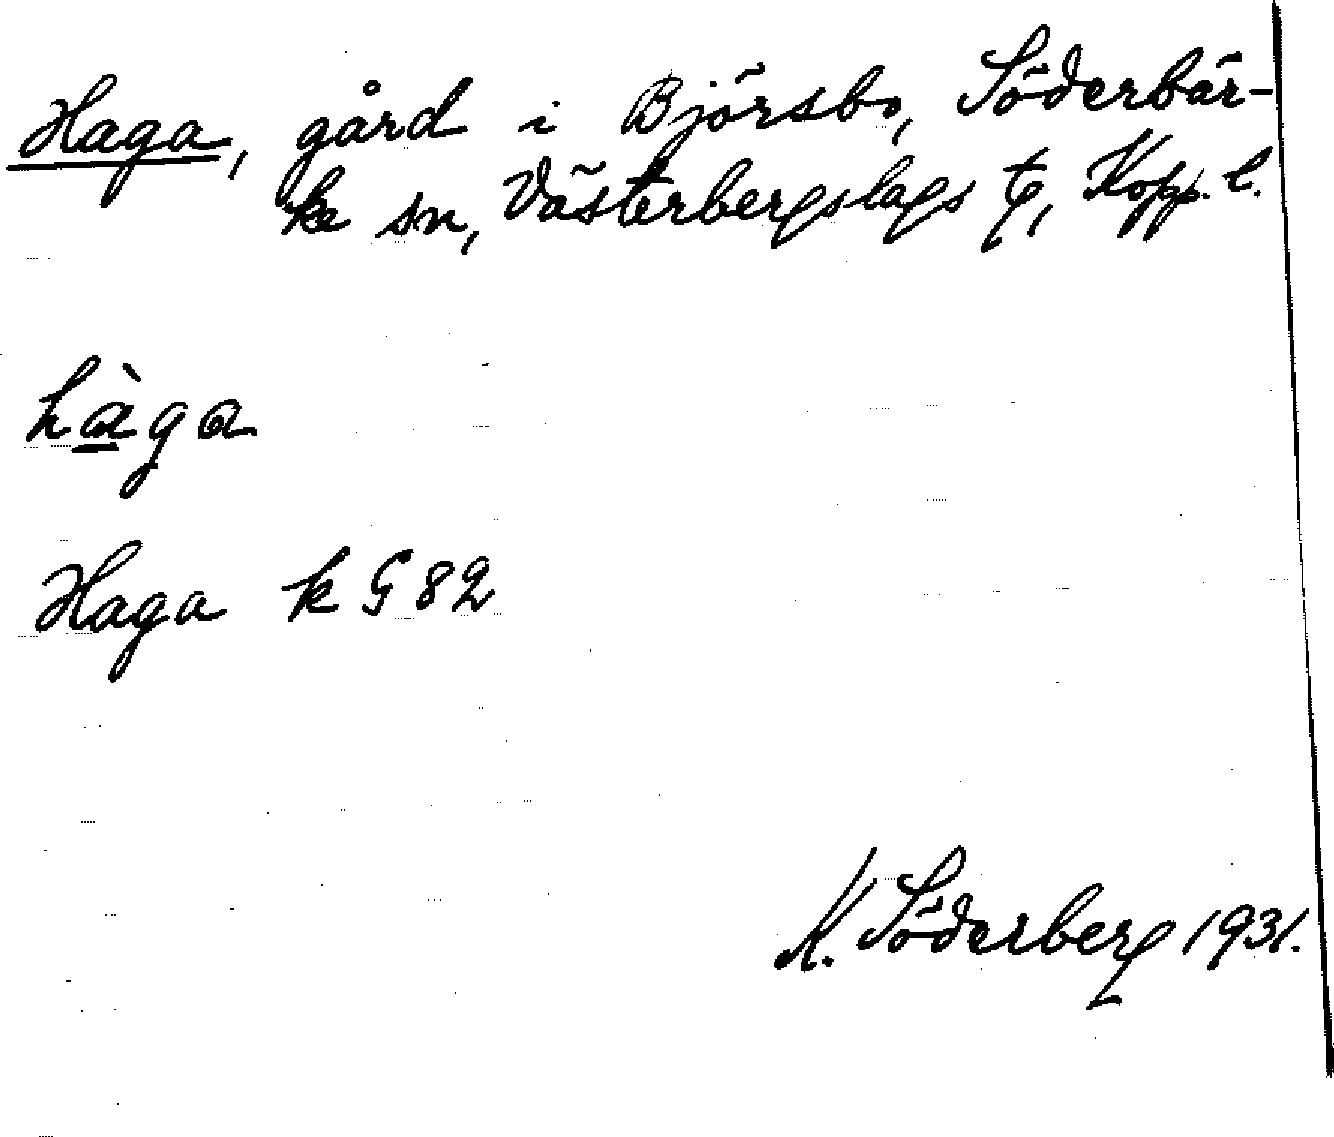 Haga, gård i Björsbo, Söderbär-
ke sn, Västerbergslags tg, Kopp. l.
hàga
Haga k G 82
K. Söderberg 1931.